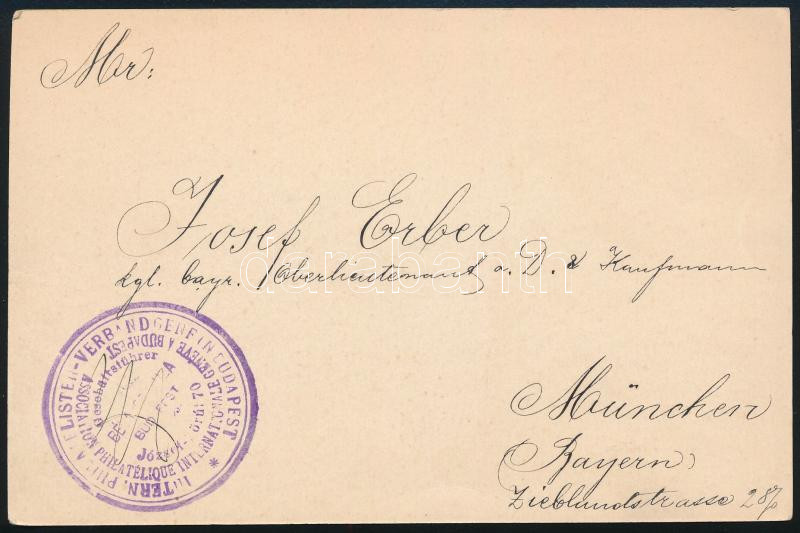 Mr:
Josef Erber
kgl. bayr. Oberlieutenant a. D. & Kaufmann
München
(Bayern)
Zieblandstrasse
INTERN. PHILATELISTEN-VERBAND GENF IN BUDAPEST
ASSOCIATION PHILATÉLIQUE INTERNATIONALE GENÈVE A BUDAPEST
Geschäftsführer
BUDAPEST
70
darabanth